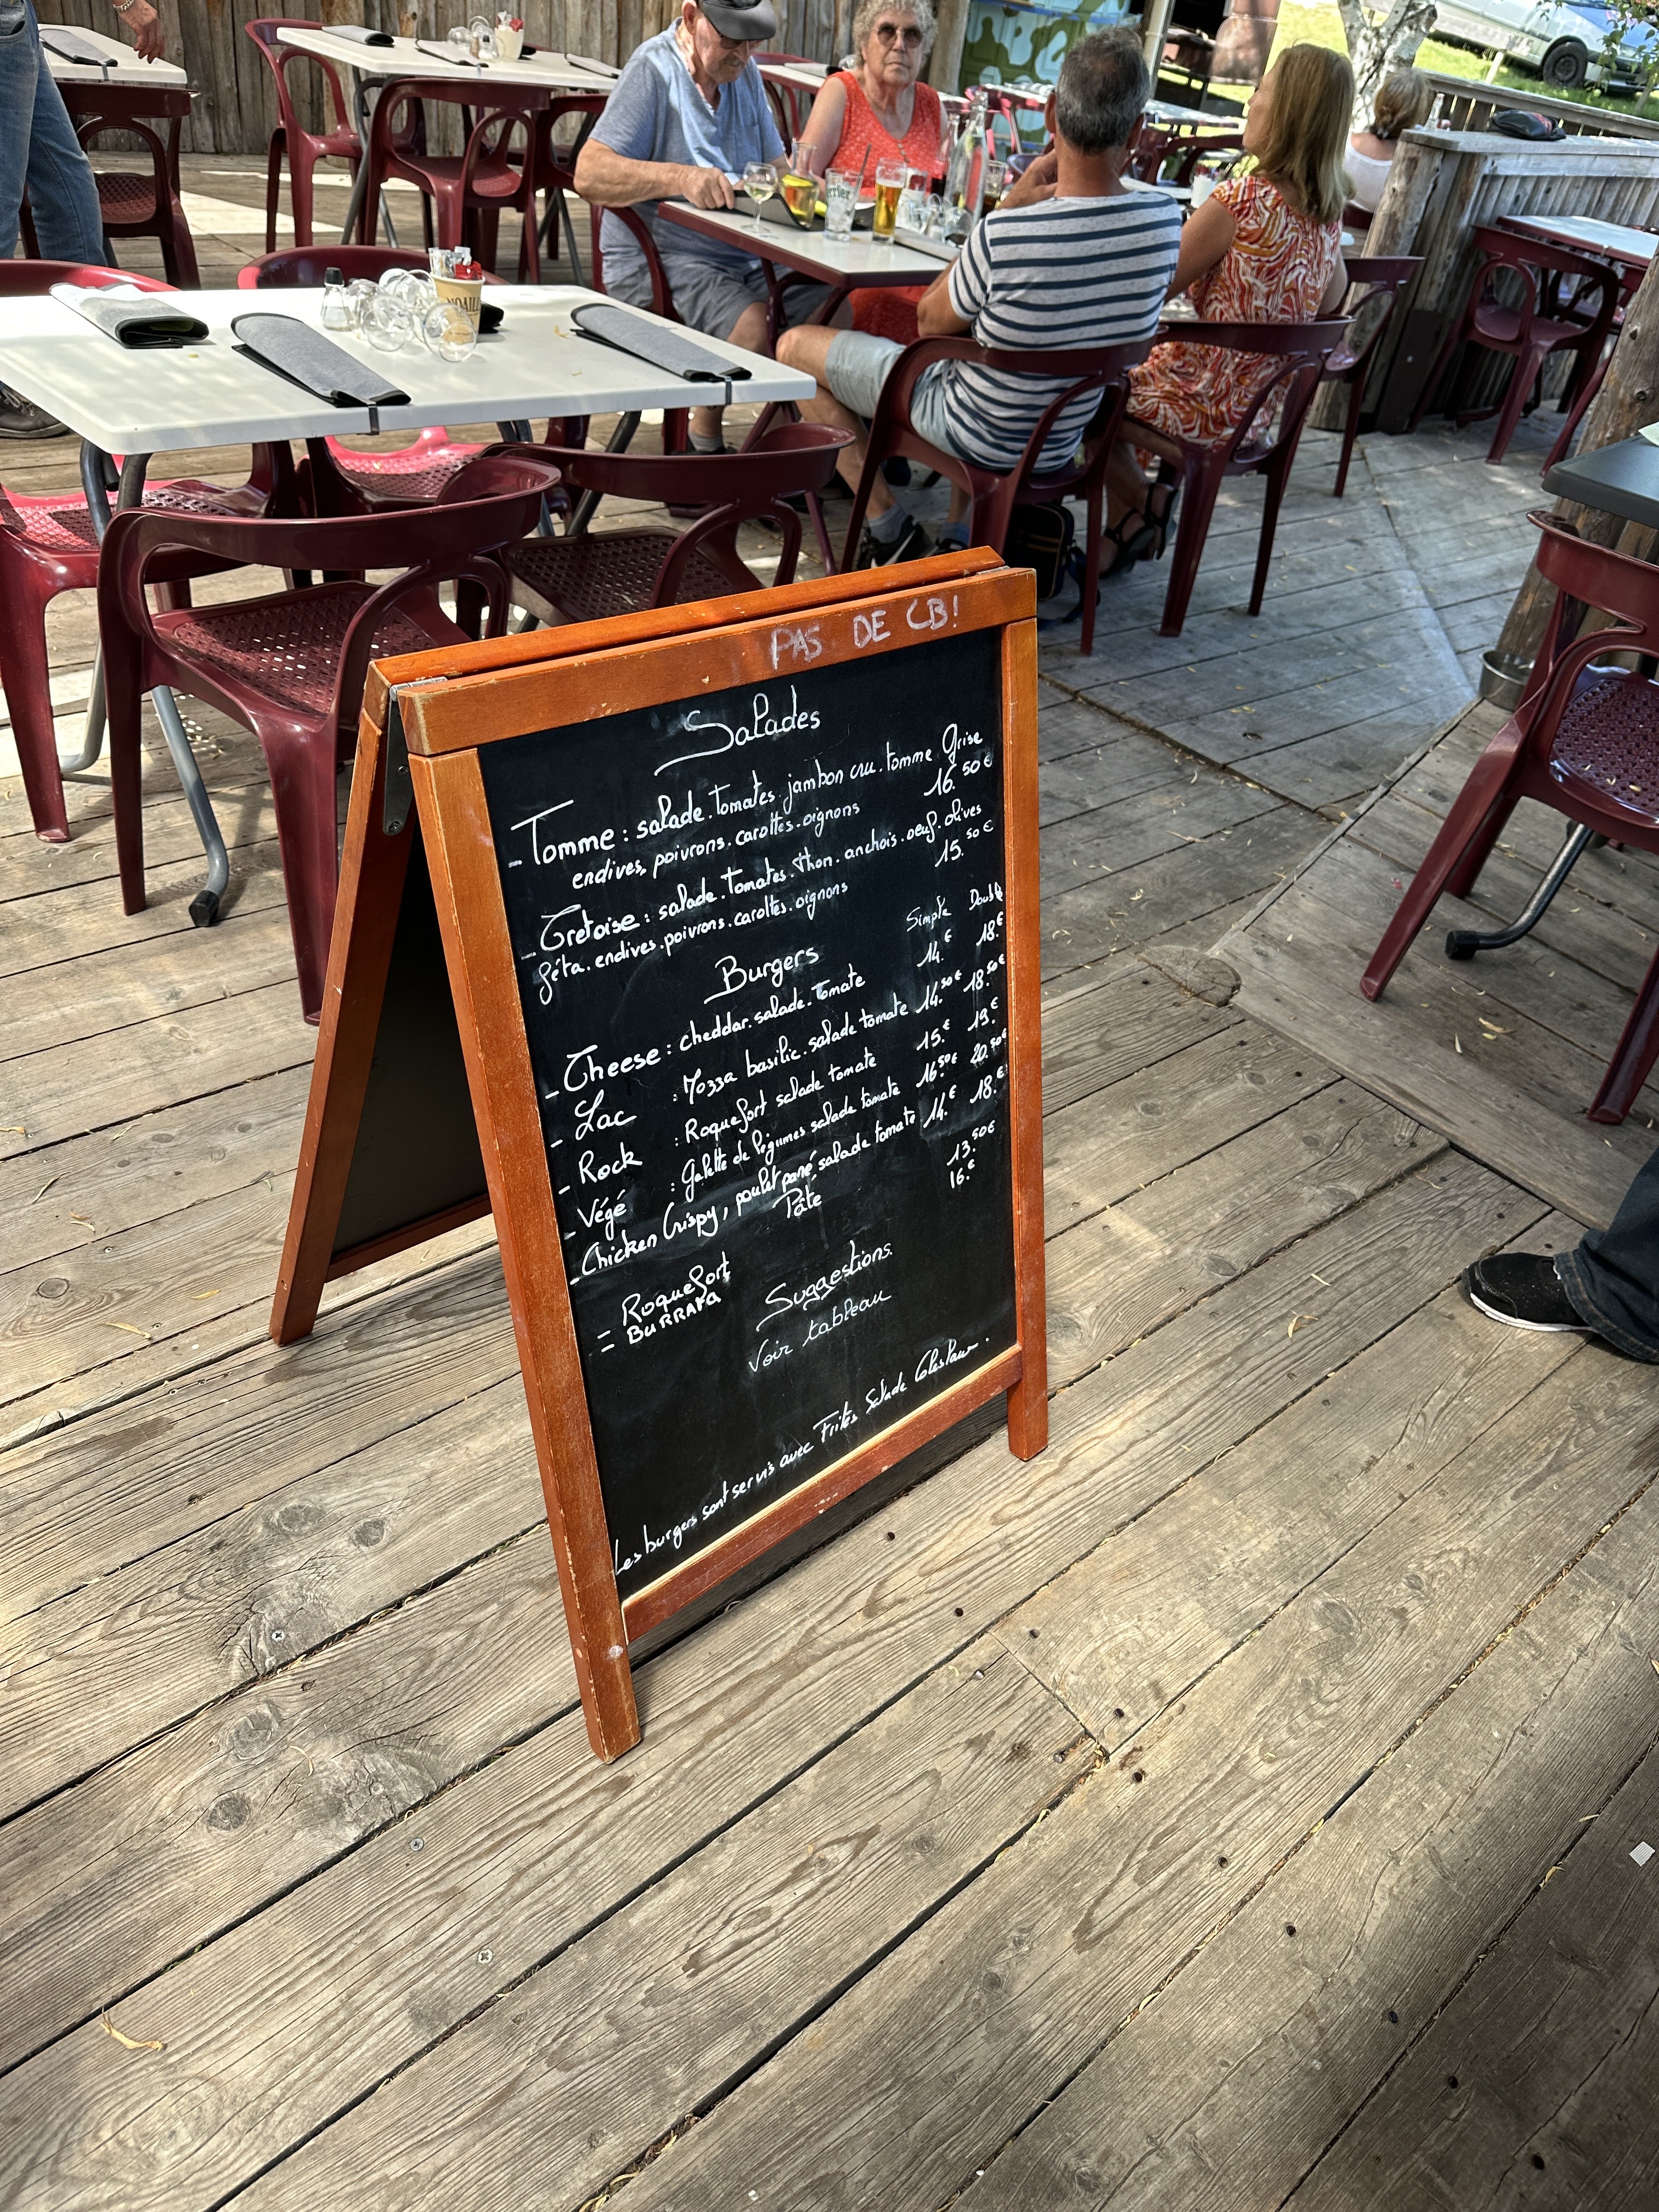 PAS DE CB!
Salades
- Tomme : salade. tomates. jambon cru. tomme Grise
endives, poivrons. carottes. oignons 16.50€
- Cretoise : salade. tomates. thon. anchois. oeuf. olives
féta. endives. poivrons. carottes. oignons 15.50€
Burgers Simple Double
- Cheese : cheddar. salade. Tomate 14.€ 18.€
- Lac : Mozza basilic. salade tomate 14.50€ 18.50€
- Rock : Roquefort salade tomate 15.€ 19.€
- Végé : Galette de légumes salade tomate 16.50€ 20.50€
- Chicken Crispy, poulet pané salade tomate 14.€ 18.€
Pâté
- Roquefort 13.50€
- BURRATA 16.€
Suggestions.
Voir tableau
Les burgers sont servis avec Frites Salade Coleslaw.